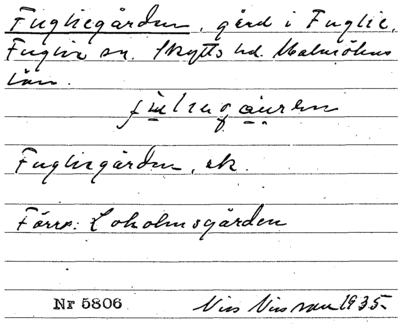 Fugliegården, gård i Fuglie,
Fuglie sn. Skytts hd. Malmöhus
län.
Fugliegården, ek.
Förr: Loholmsgården
Nr 5806 Nils Nilsson 1935.